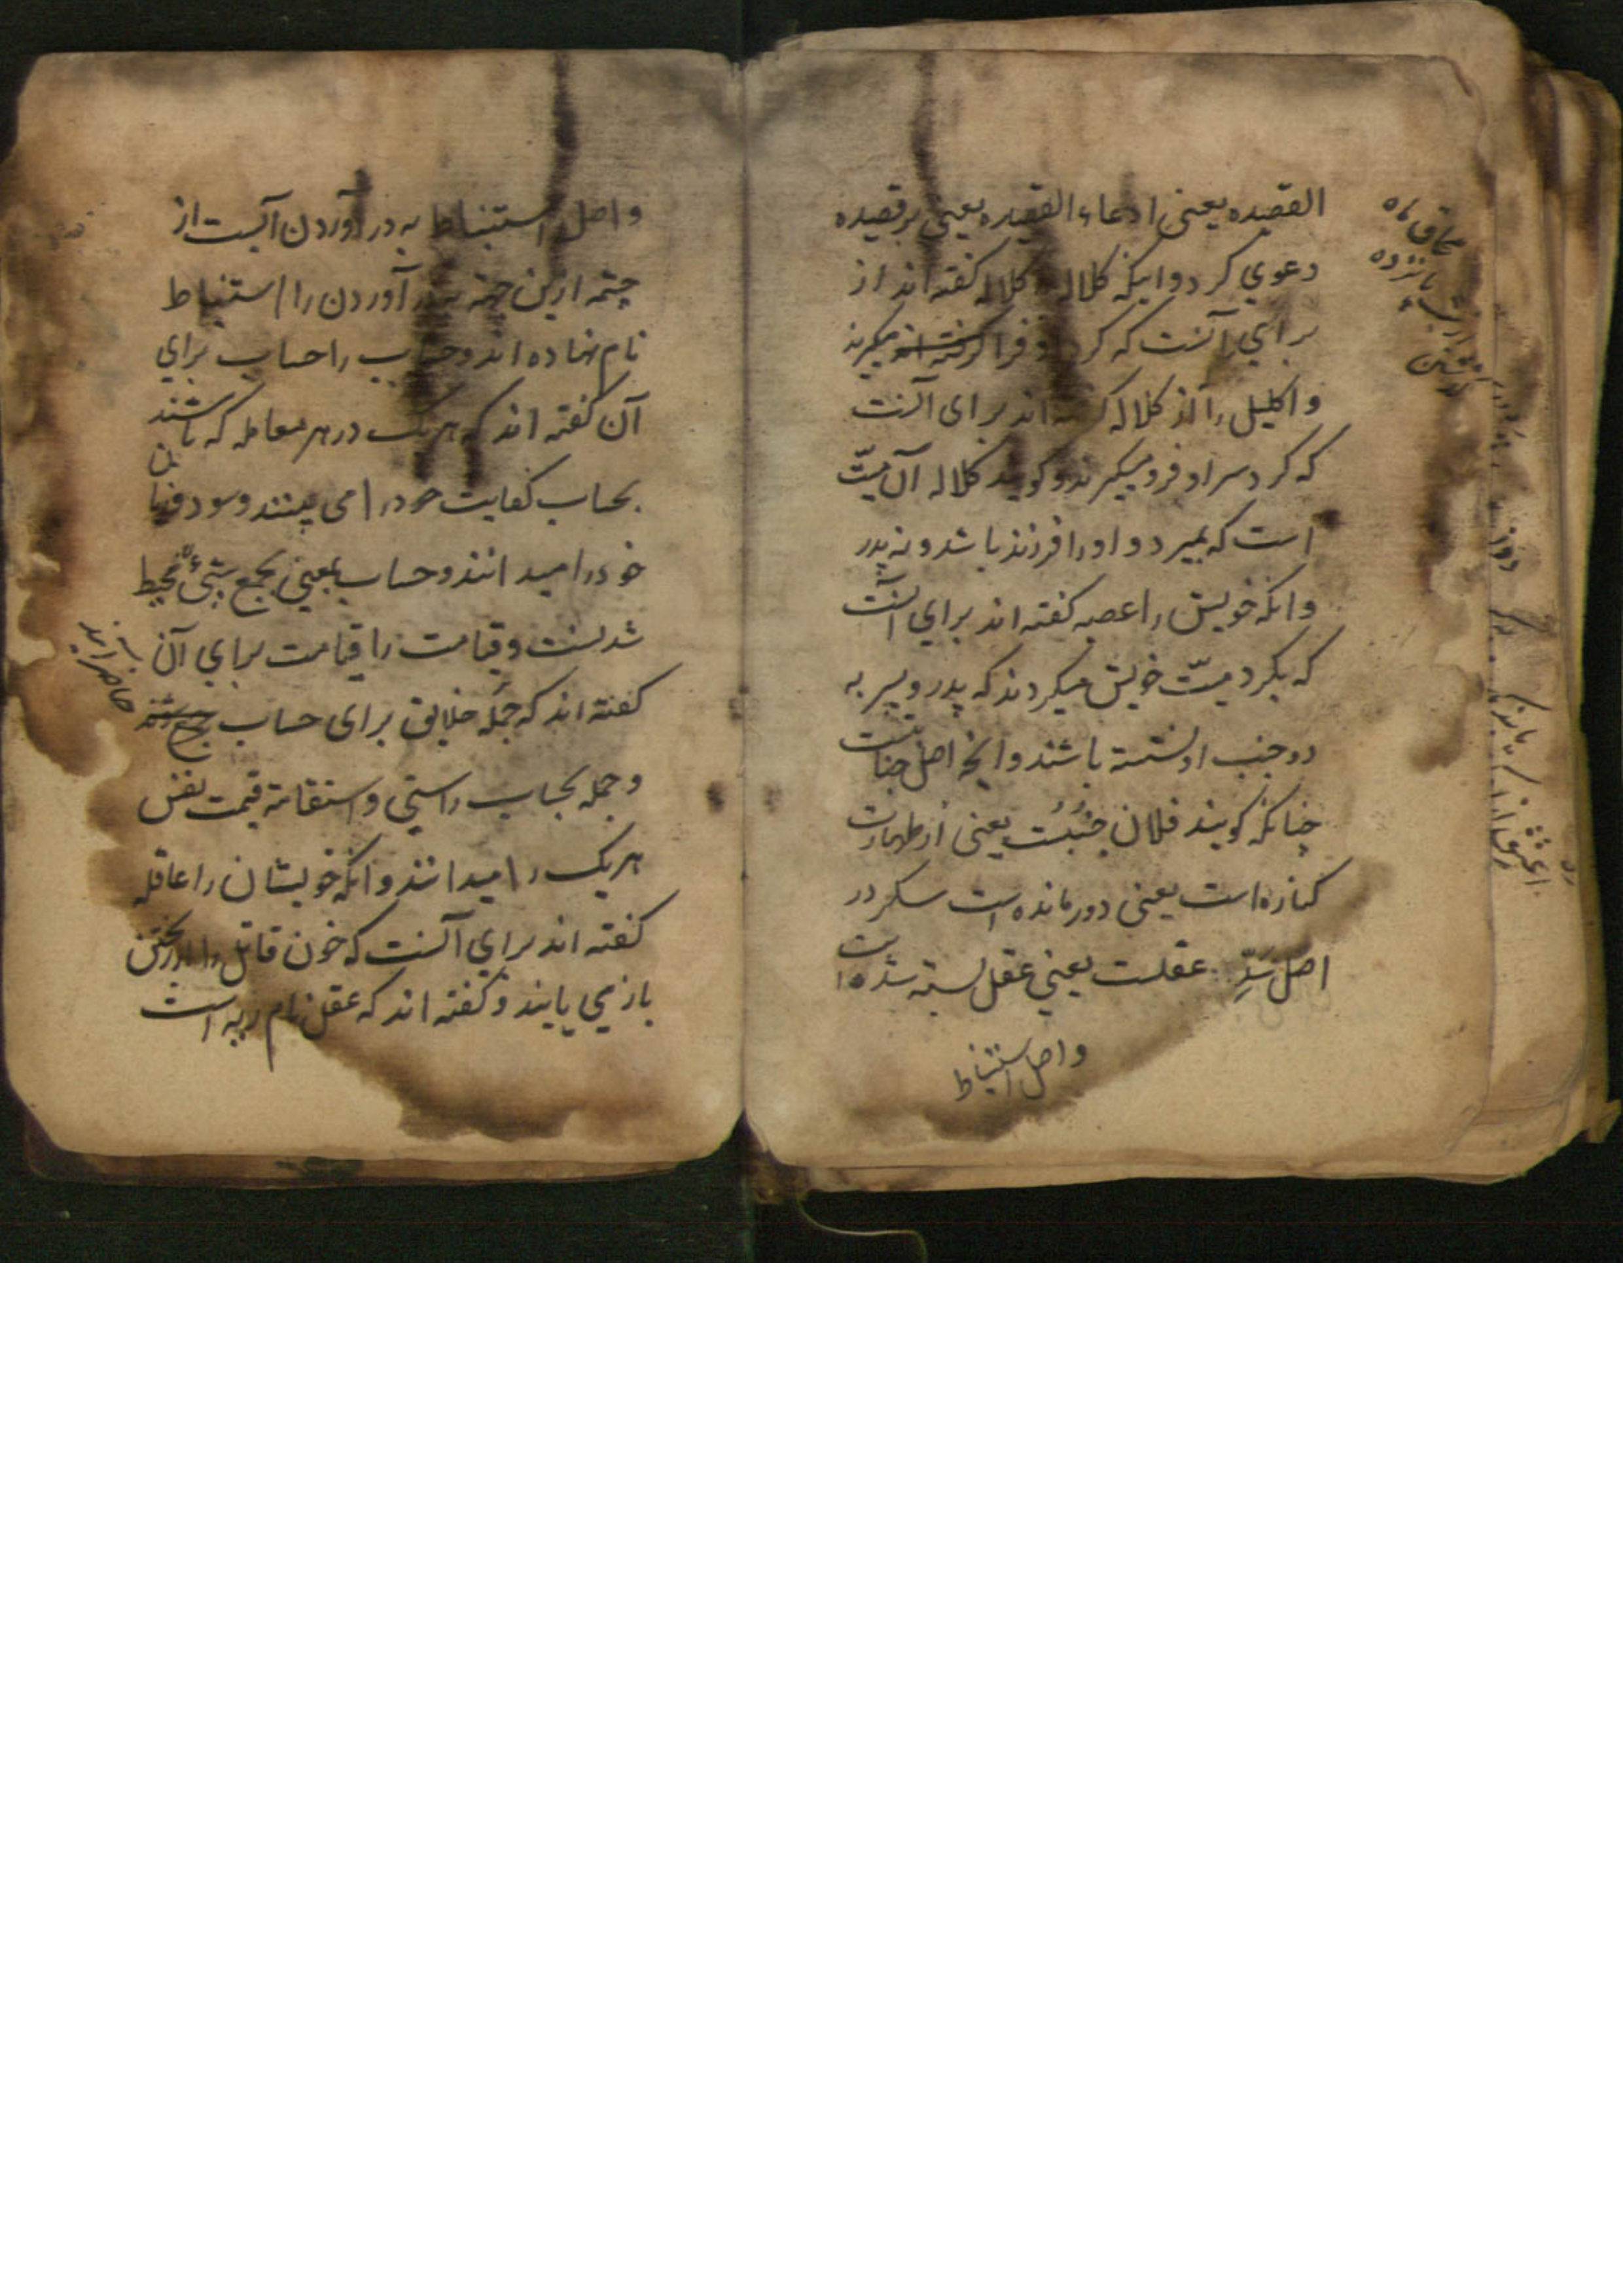 القصیده یعنی ادعاء القصیده یعنی بر قصیده
دعوي کرد و اینکه کلاله کلاله کفته اند از
برای آنست که کرد او فرا کرفته اند میکرند
و اکلیل را از کلاله کفته اند برای آنست
که کرد سر او فرو میکیرند و کویند کلاله آن میّت
است که بمیرد و او را فرزند نباشد و نه پدر
وانکه خویش را عصبه کفته اند برای آنست
که بکرد میّت خویش میکردند که پدر و پسر به
دو جنب او نشسته باشند و انچه اصل جنابت
چنانکه کویند فلان جُنُبست یعنی از طهارت
کناره است یعنی دور مانده است سکر در
اصل سَدِّ عقلست یعنی عقل بسته شده است
و اصل استنباط
محاق ماه
پانزده
کوشش
و اصل استنباط به در آوردن آبست از
چشمه ازین جهة بدر آوردن را استنباط
نام نهاده اند و حساب را حساب برای
آن کفته اند که هر یک در هر معامله که باشند
بحساب کفایت خود را می بینند و سود و زیان
خود را میدانند و حساب بمعنی بجمع شیئ محیط
شدنست و قیامت را قیامت برای آن
کفته اند که جمله خلایق برای حساب جمع شوند
حاضر آیند
و جمله بحساب راستی و استقامة قیمت نفس
هر یک را میدانند و انکه خویشان را عاقله
کفته اند برای آنست که خون قاتل را از ریختن
باز می یابند و کفته اند که عقل نام دیه است